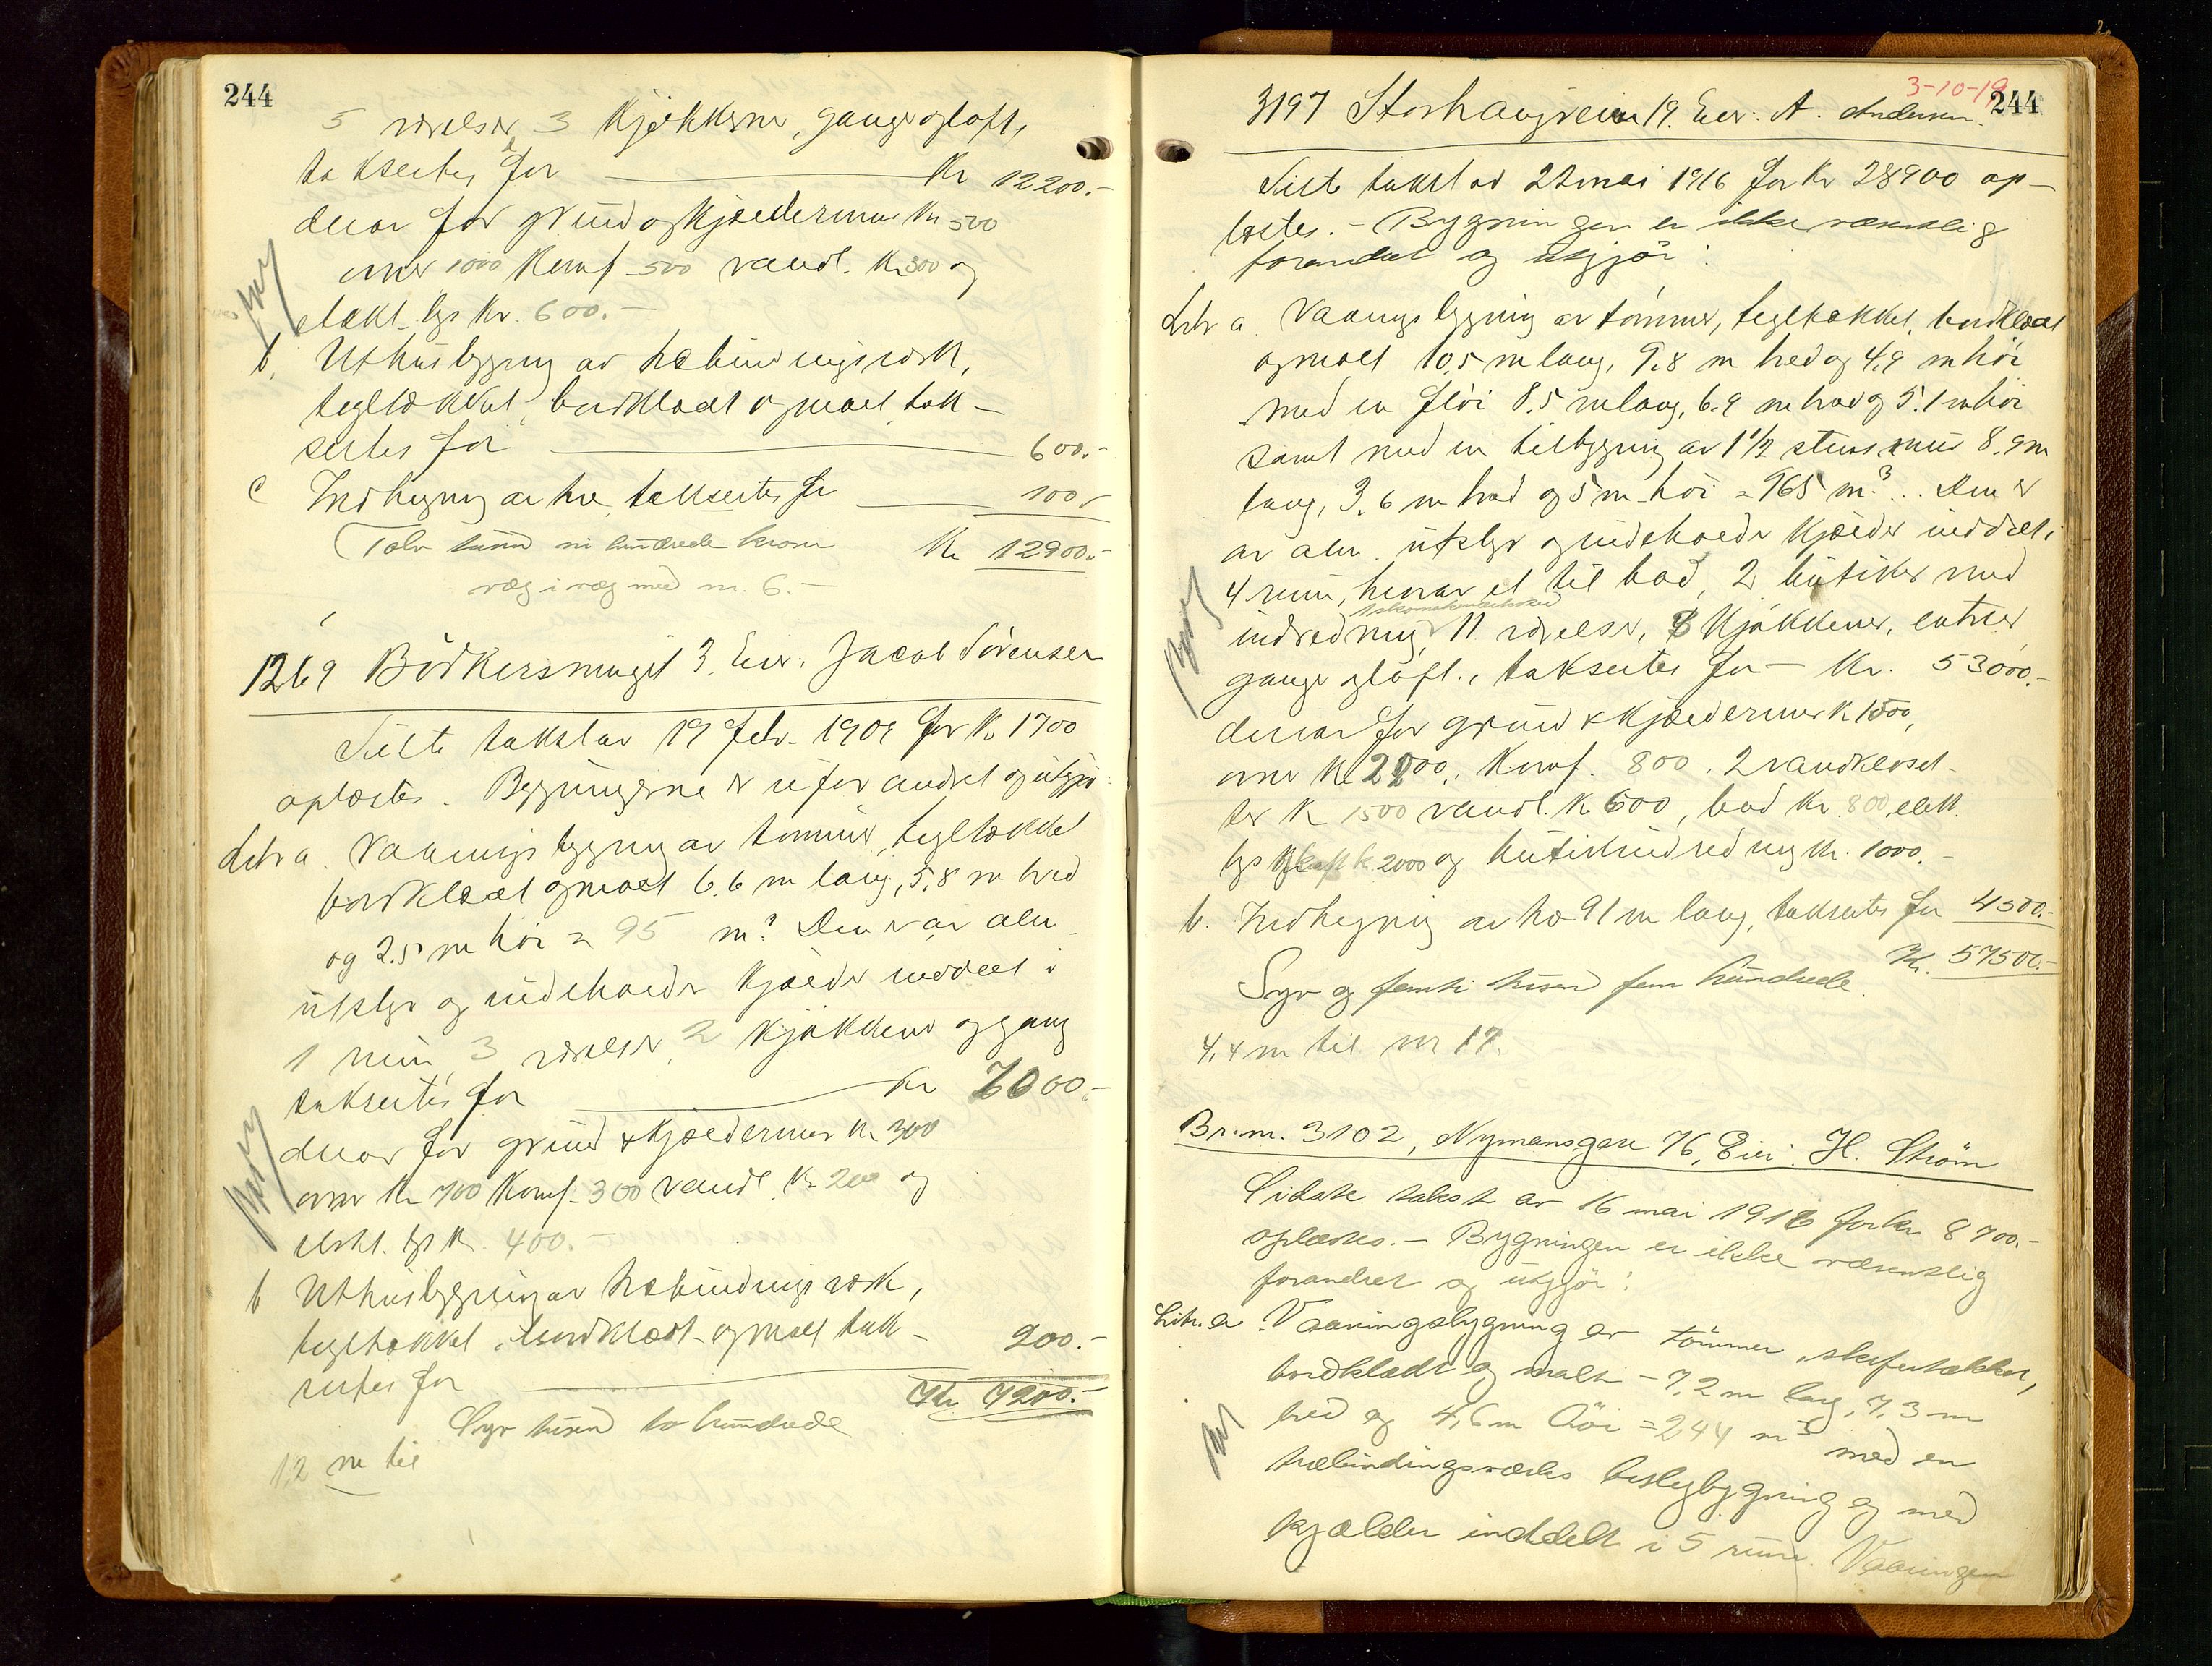 244
5 værelser, 3 Kjøkkener, gange og loft,
taksertes for Kr 12200.-
derav for grund og Kjældermur Kr 500
ovner 1000 Komf. 500 vandl. Kr 300 og
elekt. lys Kr. 600.-
b. Uthusbygning av træbindingsverk,
tegltækket, bordklædt og malt tak-
sertes for 600.-
c Indhegning av træ taksertes for 100,-
(Tolv tusen ni hundrede kroner Kr 12900.-
væg i væg med nr. 6.-
1269 Bödkersmuget 3. Eier: Jacob Sörensen
Siste takst av 19 febr. 1909 for Kr 1700
oplæstes. Bygningerne er uforandret og utgjör
Litr a. Vaaningsbygning av tömmer, tegltækket
bordklædt og malt 6.6 m lang, 5.8 m bred
og 2.5 m höi = 95 m³. Den er av alm.
utstyr og indeholder Kjælder inddelt i
1 rum, 3 værelser, 2 Kjøkkener og gang
taksertes for Kr 7000.-
derav for grund & Kjældermur Kr 300
ovner Kr 700 Komf. 300 vandl. Kr 200 og
elekt. lys Kr. 400.-
b Uthusbygning av træbindingsverk,
tegltækket, bordklædt og malt tak-
sertes for 200.-
Kr 7200.-
Syv tusen to hundrede
1,2 m til
3-10-19
244
3197 Storhaugveien 19. Eier: A. Andersen.
Siste takst av 22 mai 1916 for Kr 28900 op-
læstes. - Bygningen er ikke væsentlig
forandret og utgjör:
Litr a Vaaningsbygning av tömmer, tegltækket, bordklædt
og malt 10,5 m lang, 9.8 m bred og 4,9 m höi
med en flöi 8,5 m lang, 6.9 m bred og 5.1 m höi
samt med en tilbygning av 1 1/2 stens mur 8.9 m
lang, 3.6 m bred og 5 m höi = 965 m³. Den er
av alm. utstyr og indeholder Kjælder inddelt i
4 rum, hvorav et til bad, 2 butiker med
indredning, 11 værelser, 3 Kjøkkener, entreer
gange og loft, taksertes for - Kr. 53000.-
derav for grund & Kjældermur Kr 1500,
ovner Kr 2200, Komf. 800, 2 vandkloset-
ter Kr 1500 vandl. Kr 600, bad Kr. 800, elekt.
lys & kraft k. 2000 og butikindredning Kr. 1000.-
b. Indhegning av træ 91 m lang, taksertes for 4500.-
Kr. 57500.-
Syv og femti tusen fem hundrede.
4,4 m til nr 17.
Br. nr. 3102, Nymansgate 76, Eier: H. Ström
Sidste takst av 16 mai 1916 for kr 8700.-
oplæstes. - Bygningen er ikke væsentlig
forandret og utgjör:
Litr. a Vaaningsbygning av tömmer, skifertækket,
bordklædt og malt - 7,2 m lang, 7,3 m
bred og 4,6 m höi = 244 m³ med en
træbindingsverks bislagbygning og med
kjælder inddelt i 5 rum. Vaaningen